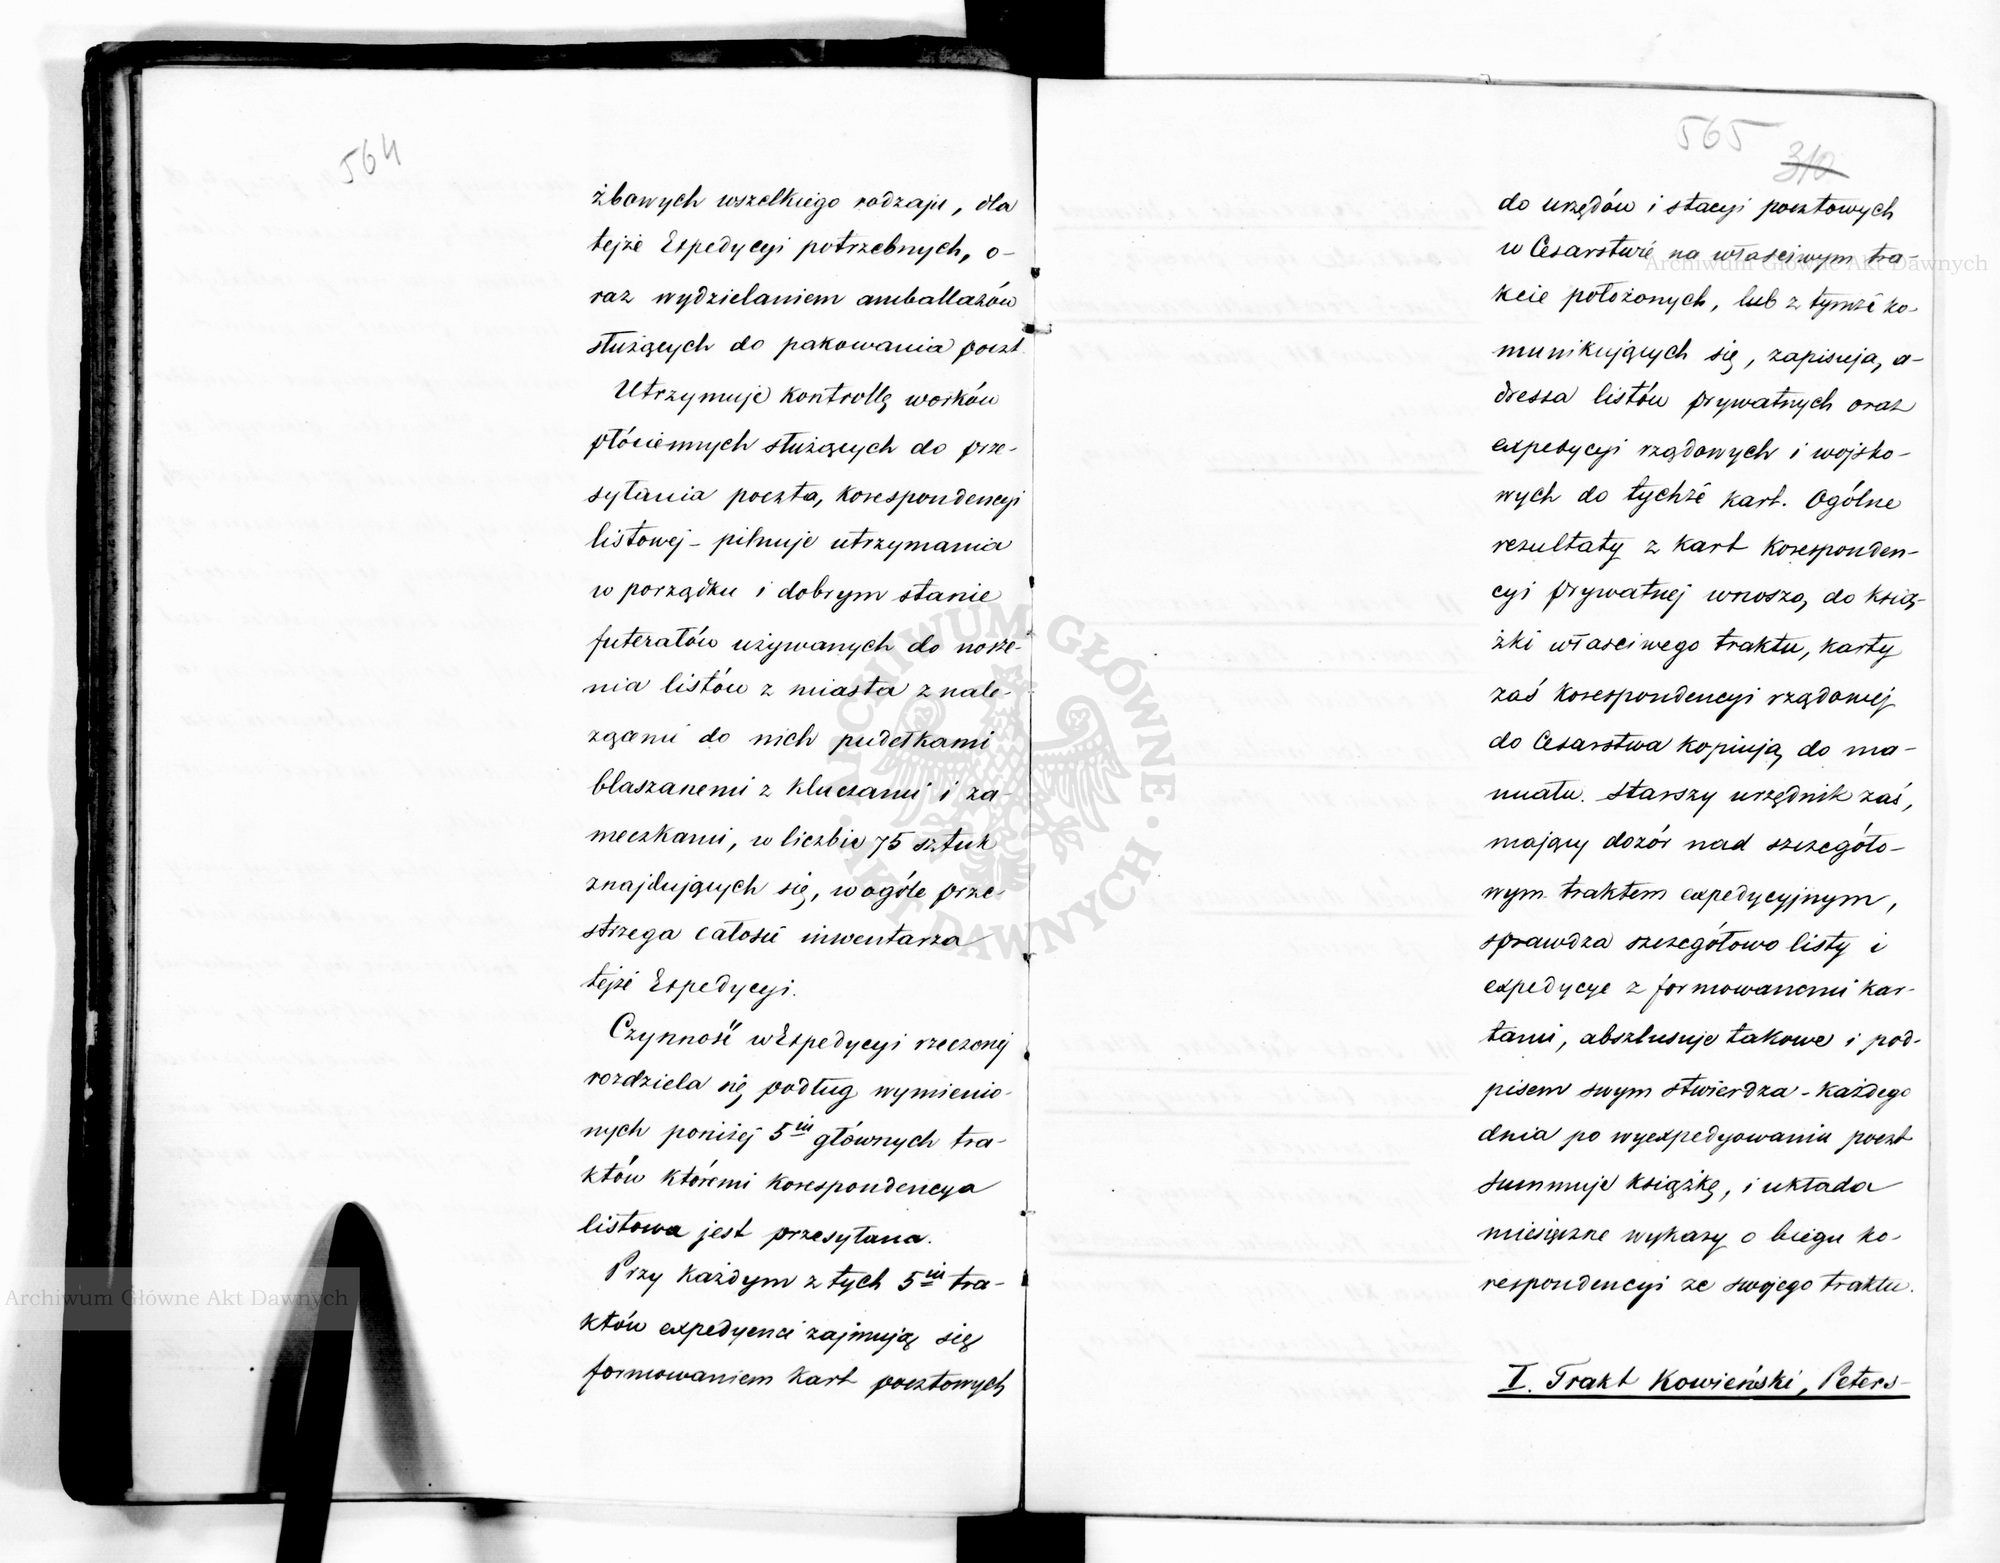 564
żbowych wszelkiego rodzaju, dla
tejże Expedycyi potrzebnych, o-
raz wydzielaniem amballazów
służących do pakowania poczt.
Utrzymuje kontrollę worków
płóciennych służących do prze-
syłania pocztą, korespondencyi
listowej - pilnuje utrzymania
w porządku i dobrym stanie
futerałów używanych do nosze-
nia listów z miasta z nale-
żącemi do nich pudełkami
blaszanemi z kluczami i za-
meczkami, w liczbie 75 sztuk
znajdujących się, w ogóle prze-
strzega całość inwentarza
tejże Expedycyi.
Czynność w Expedycyi rzeczonej
rozdziela się podług wymienio-
nych poniżej 5iu głównych tra-
któw któremi korespondencya
listowa jest przesyłana.
Przy każdym z tych 5iu tra-
któw expedyenci zajmują się
formowaniem kart pocztowych
565
310
do urzędów i stacyi pocztowych
w Cesarstwie na właściwym tra-
kcie położonych, lub z tymże ko-
munikujących się, zapisują, a-
dressa listów prywatnych oraz
expedycyi rządowych i wojsko-
wych do tychże kart. Ogólne
rezultaty z kart koresponden-
cyi prywatnej wnoszą, do ksią-
żki właściwego traktu, karty
zaś korespondencyi rządowej
do Cesarstwa kopiują, do ma-
nuału. Starszy urzędnik zaś,
mający dozór nad szczegóło-
wym traktem expedycyjnym,
sprawdza szczegółowo listy i
expedycye z formowanemi kar-
tami, abszlusuje takowe i pod-
pisem swym stwierdza - każdego
dnia po wyexpedyowaniu poczt
summuje książkę, i układa
miesięczne wykazy o biegu ko-
respondencyi ze swojego traktu.
I. Trakt Kowieński, Peters-
Archiwum Główne Akt Dawnych
Archiwum Główne Akt Dawnych
ARCHIWUM GŁÓWNE · AKT DAWNYCH ·